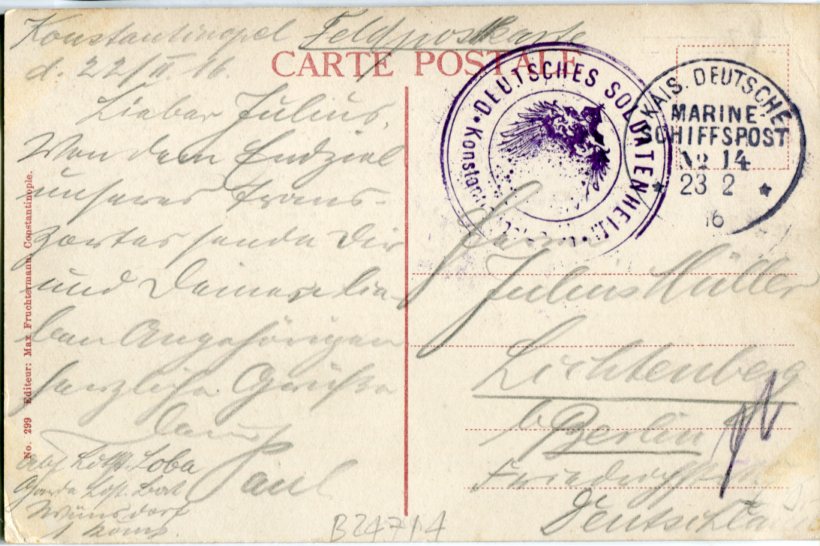 Konstantinopel Feldpostkarte
d. 22/II. 16
CARTE POSTALE
Lieber Julius,
Von dem Endziel
unseres Trans-
portes sende Dir
und Deinen lie-
ben Angehörigen
herzliche Grüße
Dein
Paul
Abs. Loba
Wünsdorf
DEUTSCHES SOLDATENHEIM
KAIS. DEUTSCHE
MARINE
SCHIFFSPOST
No 14
23 2
16
Herrn
Julius Müller
Lichtenberg
b/Berlin
Deutschland
No. 299 Editeur: Max Fruchtermann, Constantinople.
B24714